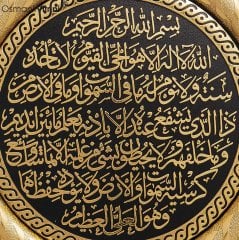 Osmanlı
بسم الله الرحمن الرحيم
الله لا إله إلا هو الحي القيوم لا تأخذه
سنة ولا نوم له ما في السموات وما في الأرض من
ذا الذي يشفع عنده إلا بإذنه يعلم ما بين أيديهم
وما خلفهم ولا يحيطون بشيء من علمه إلا بما شاء وسع
كرسيه السموات والأرض ولا يؤده حفظهما
وهو العلي العظيم